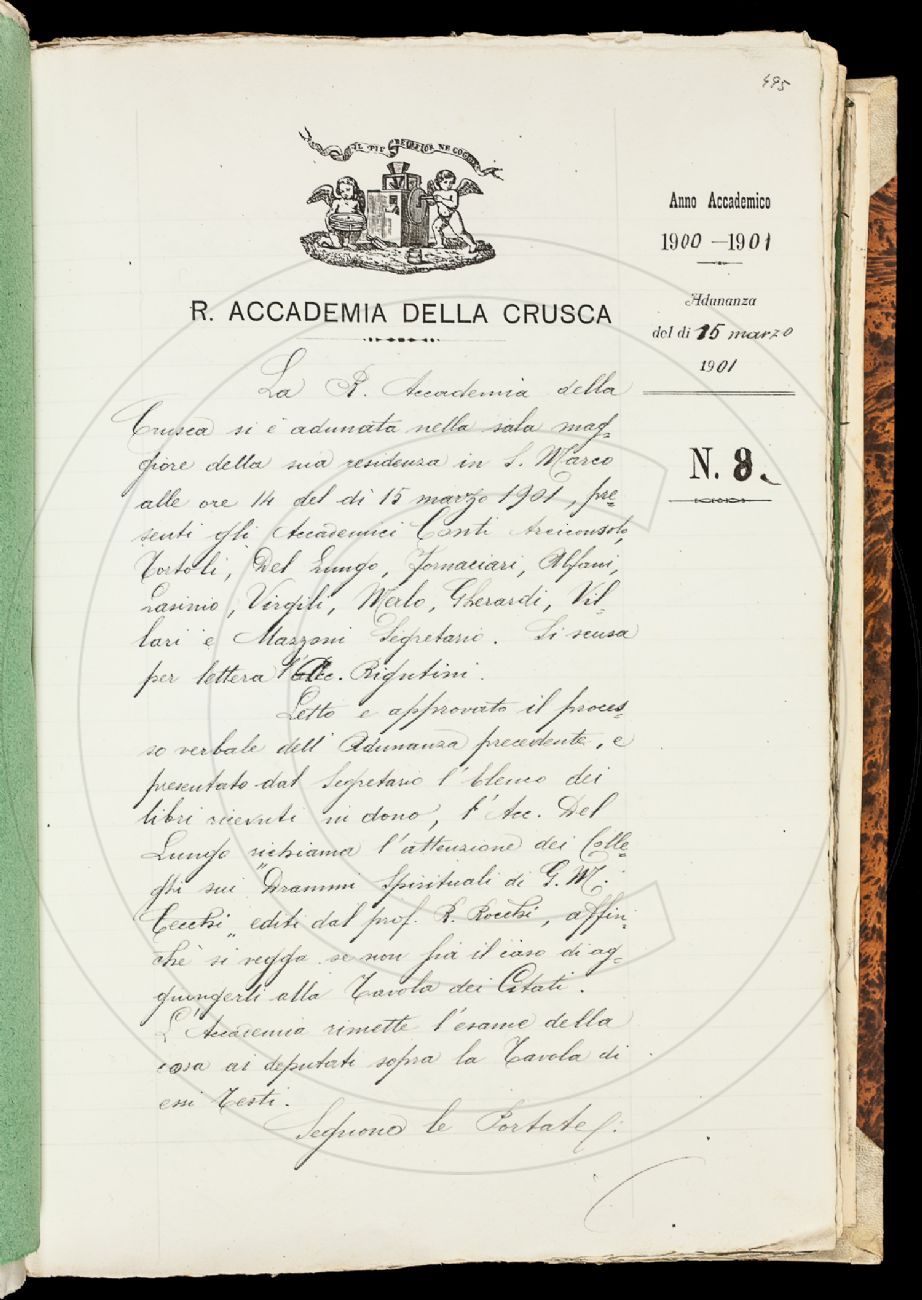 495
IL PIÙ BEL FIOR NE COGLIE
Anno Accademico
1900-1901
Adunanza
del dì 15 marzo
1901
N. 8.
R. ACCADEMIA DELLA CRUSCA
La R. Accademia della
Crusca si è adunata nella sala mag=
giore della sua residenza in S. Marco
alle ore 14 del dì 15 marzo 1901, pre=
senti gli Accademici Conti Arciconsolo,
Tortoli, Del Lungo, Fornaciari, Alfani,
Lasinio, Virgili, Merlo, Gherardi, Vil=
lari e Mazzoni Segretario. Si scusa
per lettera l'Acc. Rigutini.
Letto e approvato il proces=
so verbale dell'Adunanza precedente, e
presentato dal Segretario l'Elenco dei
libri ricevuti in dono, l'Acc. Del
Lungo richiama l'attenzione dei Colle=
ghi sui "Drammi Spirituali di G. M.
Cecchi„ editi dal prof. R. Rocchi, affin=
chè si vegga se non sia il caso di ag=
giungerli alla Tavola dei Citati.
L'Accademia rimette l'esame della
cosa ai deputati sopra la Tavola di
essi Testi.
Seguono le Portate: